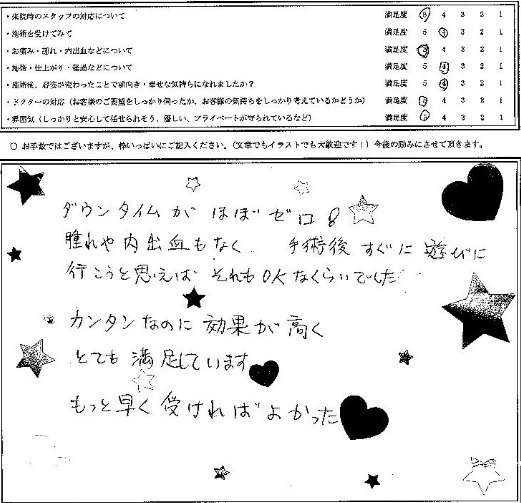 ・来院時のスタッフの対応について 満足度 5 4 3 2 1
・施術を受けてみて 満足度 5 4 3 2 1
・お痛み・腫れ・内出血などについて 満足度 5 4 3 2 1
・施術・仕上がり・経過などについて 満足度 5 4 3 2 1
・施術後、容姿が変わったことで前向き・幸せな気持ちになれましたか？ 満足度 5 4 3 2 1
・ドクターの対応（お客様のご要望をしっかり伺ったか、お客様の気持ちをしっかり考えているかどうか） 満足度 5 4 3 2 1
・雰囲気（しっかりと安心して任せられそう、優しい、プライベートが守られているなど） 満足度 5 4 3 2 1
○ お手数ではございますが、枠いっぱいにご記入ください。（文章でもイラストでも大歓迎です！）今後の励みにさせて頂きます。
ダウンタイムがほぼゼロ!
腫れや内出血もなく、手術後すぐに遊びに
行こうと思えばそれもOKなくらいでした
カンタンなのに効果が高く
とても満足しています
もっと早く受ければよかった